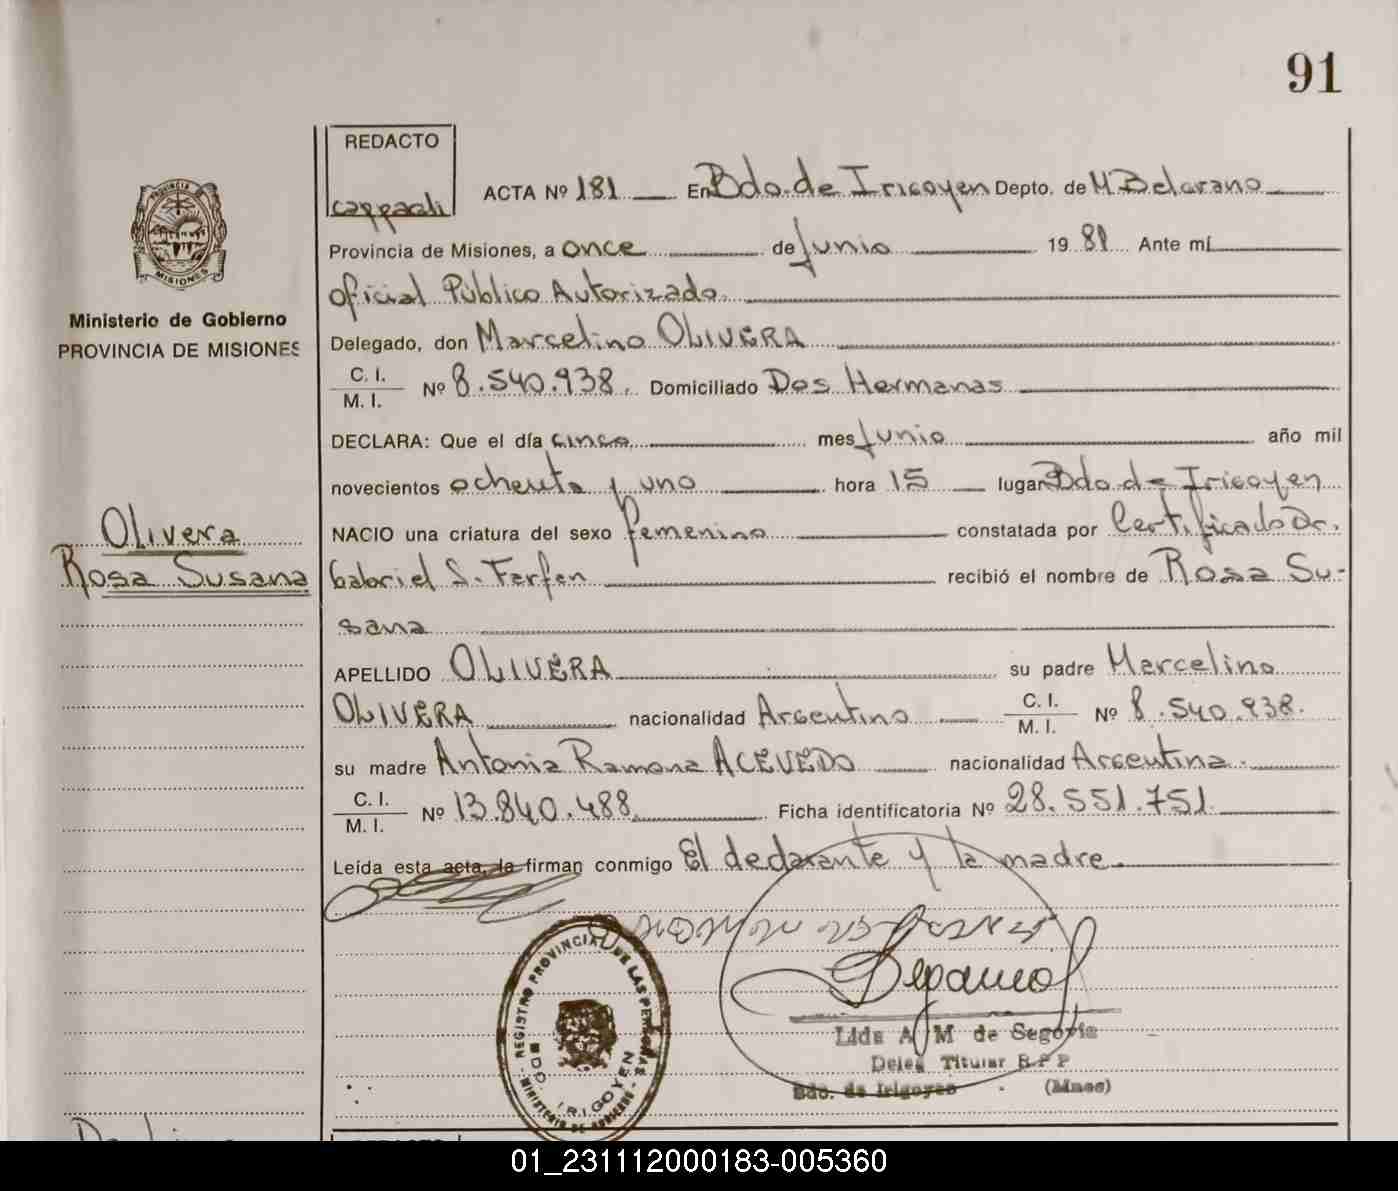 91
REDACTO
cappacli
ACTA Nº 181 En Bdo. de Irigoyen Depto. de M Belgrano
PROVINCIA
MISIONES
Provincia de Misiones, a once de Junio 19 81 Ante mí
oficial Público Autorizado.
Ministerio de Gobierno
PROVINCIA DE MISIONES
Delegado, don Marcelino OLIVERA
C. I.
M. I.
Nº 8.540.938. Domiciliado Dos Hermanas
DECLARA: Que el día cinco mes Junio año mil
novecientos ochenta y uno hora 15 lugar Bdo de Irigoyen
Olivera
Rosa Susana
NACIO una criatura del sexo femenino constatada por Certificado Dr.
Gabriel S. Ferfen recibió el nombre de Rosa Su-
sana
APELLIDO OLIVERA su padre Marcelino
OLIVERA nacionalidad Argentino C. I. M. I. Nº 8.540.938.
su madre Antonia Ramona ACEVEDO nacionalidad Argentina.
C. I.
M. I.
Nº 13.840.488 Ficha identificatoria Nº 28.551.751
Leída esta acta, la firman conmigo El declarante y la madre.
REGISTRO PROVINCIAL DE LAS PERSONAS
MINISTERIO DE GOBIERNO
BDO. IRIGOYEN
Lida A M de Segovia
Deleg Titular R P P
Bdo. de Irigoyen (Mnes)
01_231112000183-005360